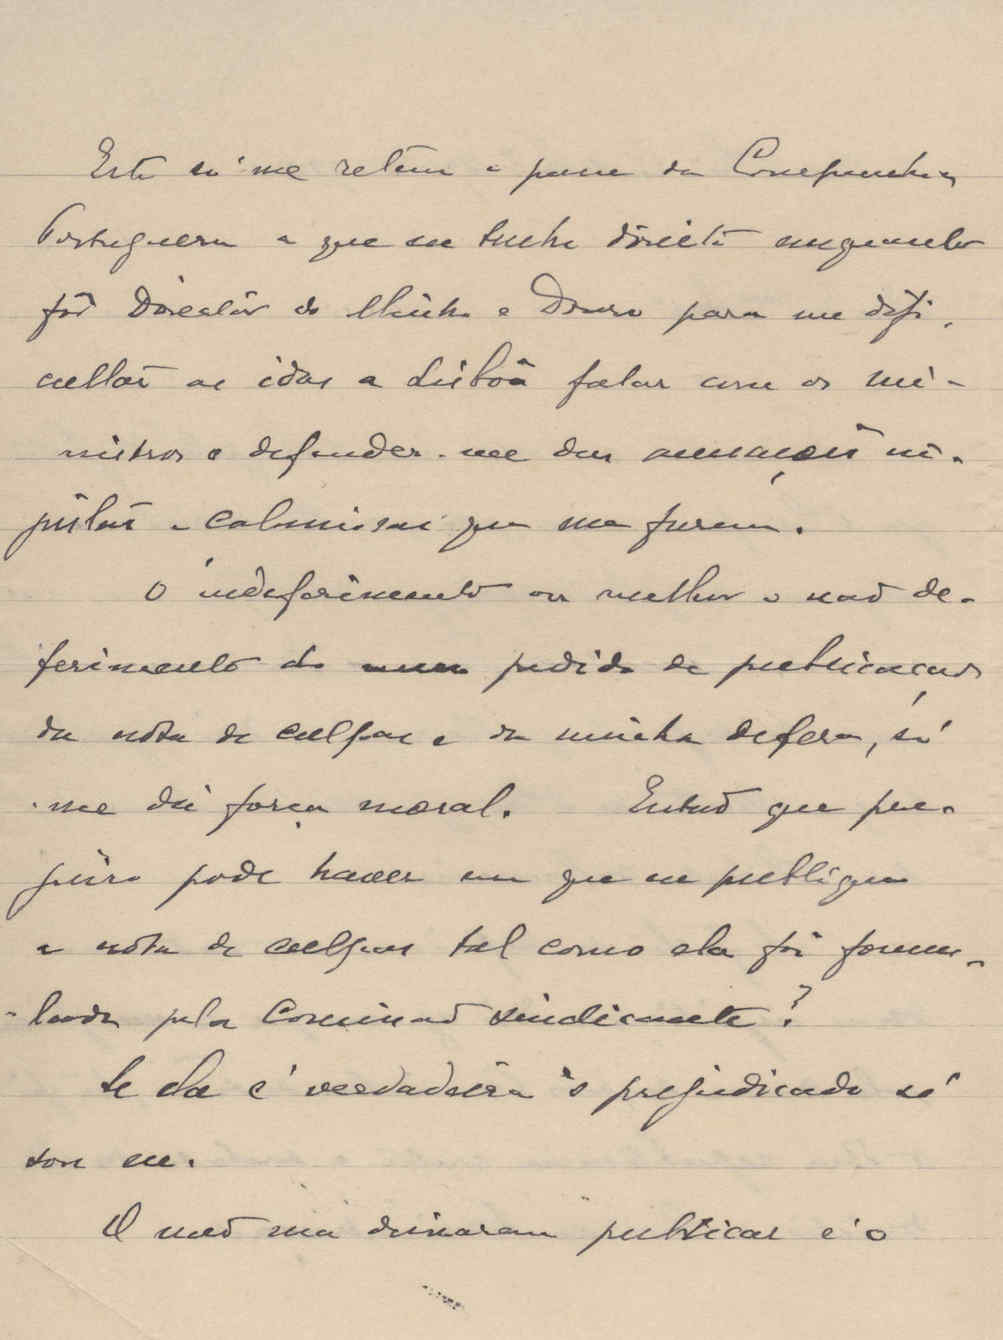 Este só me retem o passe da Companhia
Portuguesa a que eu tinha direito emquanto
fôr Director do Minho e Douro para me difi-
cultar as idas a Lisbôa falar com os mi-
nistros e defender-me das acusações in-
justas e caluniosas que me fizeram.
O indeferimento ou melhor o não de-
ferimento do meu pedido de publicação
da nota de culpas e da minha defesa, só
me dá força moral. Então que pre-
juizo pode haver em que se publique
a nota de culpas tal como ela foi formu-
lada pela Comissão sindicante?
Se ela é verdadeira o prejudicado só
sou eu.
O não ma deixarem publicar é o